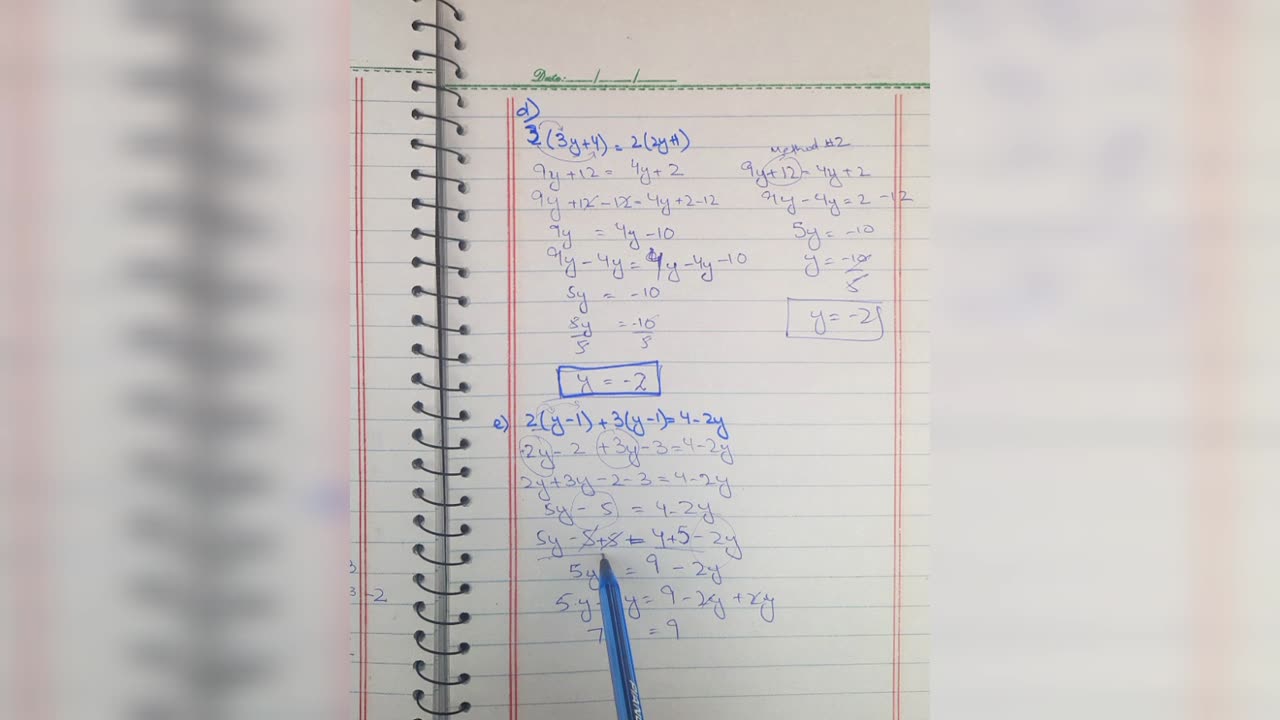 Date: ___/___/___
d)
3(3y+4) = 2(2y+1)
9y+12 = 4y+2
9y+12-12 = 4y+2-12
9y = 4y-10
9y-4y = 4y-4y-10
5y = -10
5y/5 = -10/5
y = -2
method #2
9y+12 = 4y+2
9y-4y = 2-12
5y = -10
y = -10/5
y = -2
e) 2(y-1)+3(y-1)=4-2y
2y-2+3y-3=4-2y
2y+3y-2-3=4-2y
5y-5 = 4-2y
5y-5+5 = 4+5-2y
5y = 9-2y
5y y = 9-2y+2y
7 = 9
3
3-2